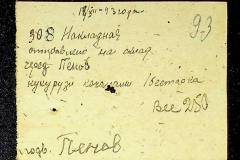 18/XII-43 года
93
308 Накладная
отправлено на склад
через Пенов
кукурузи качанами 1 бестарка
Все 250
подп. Пенов